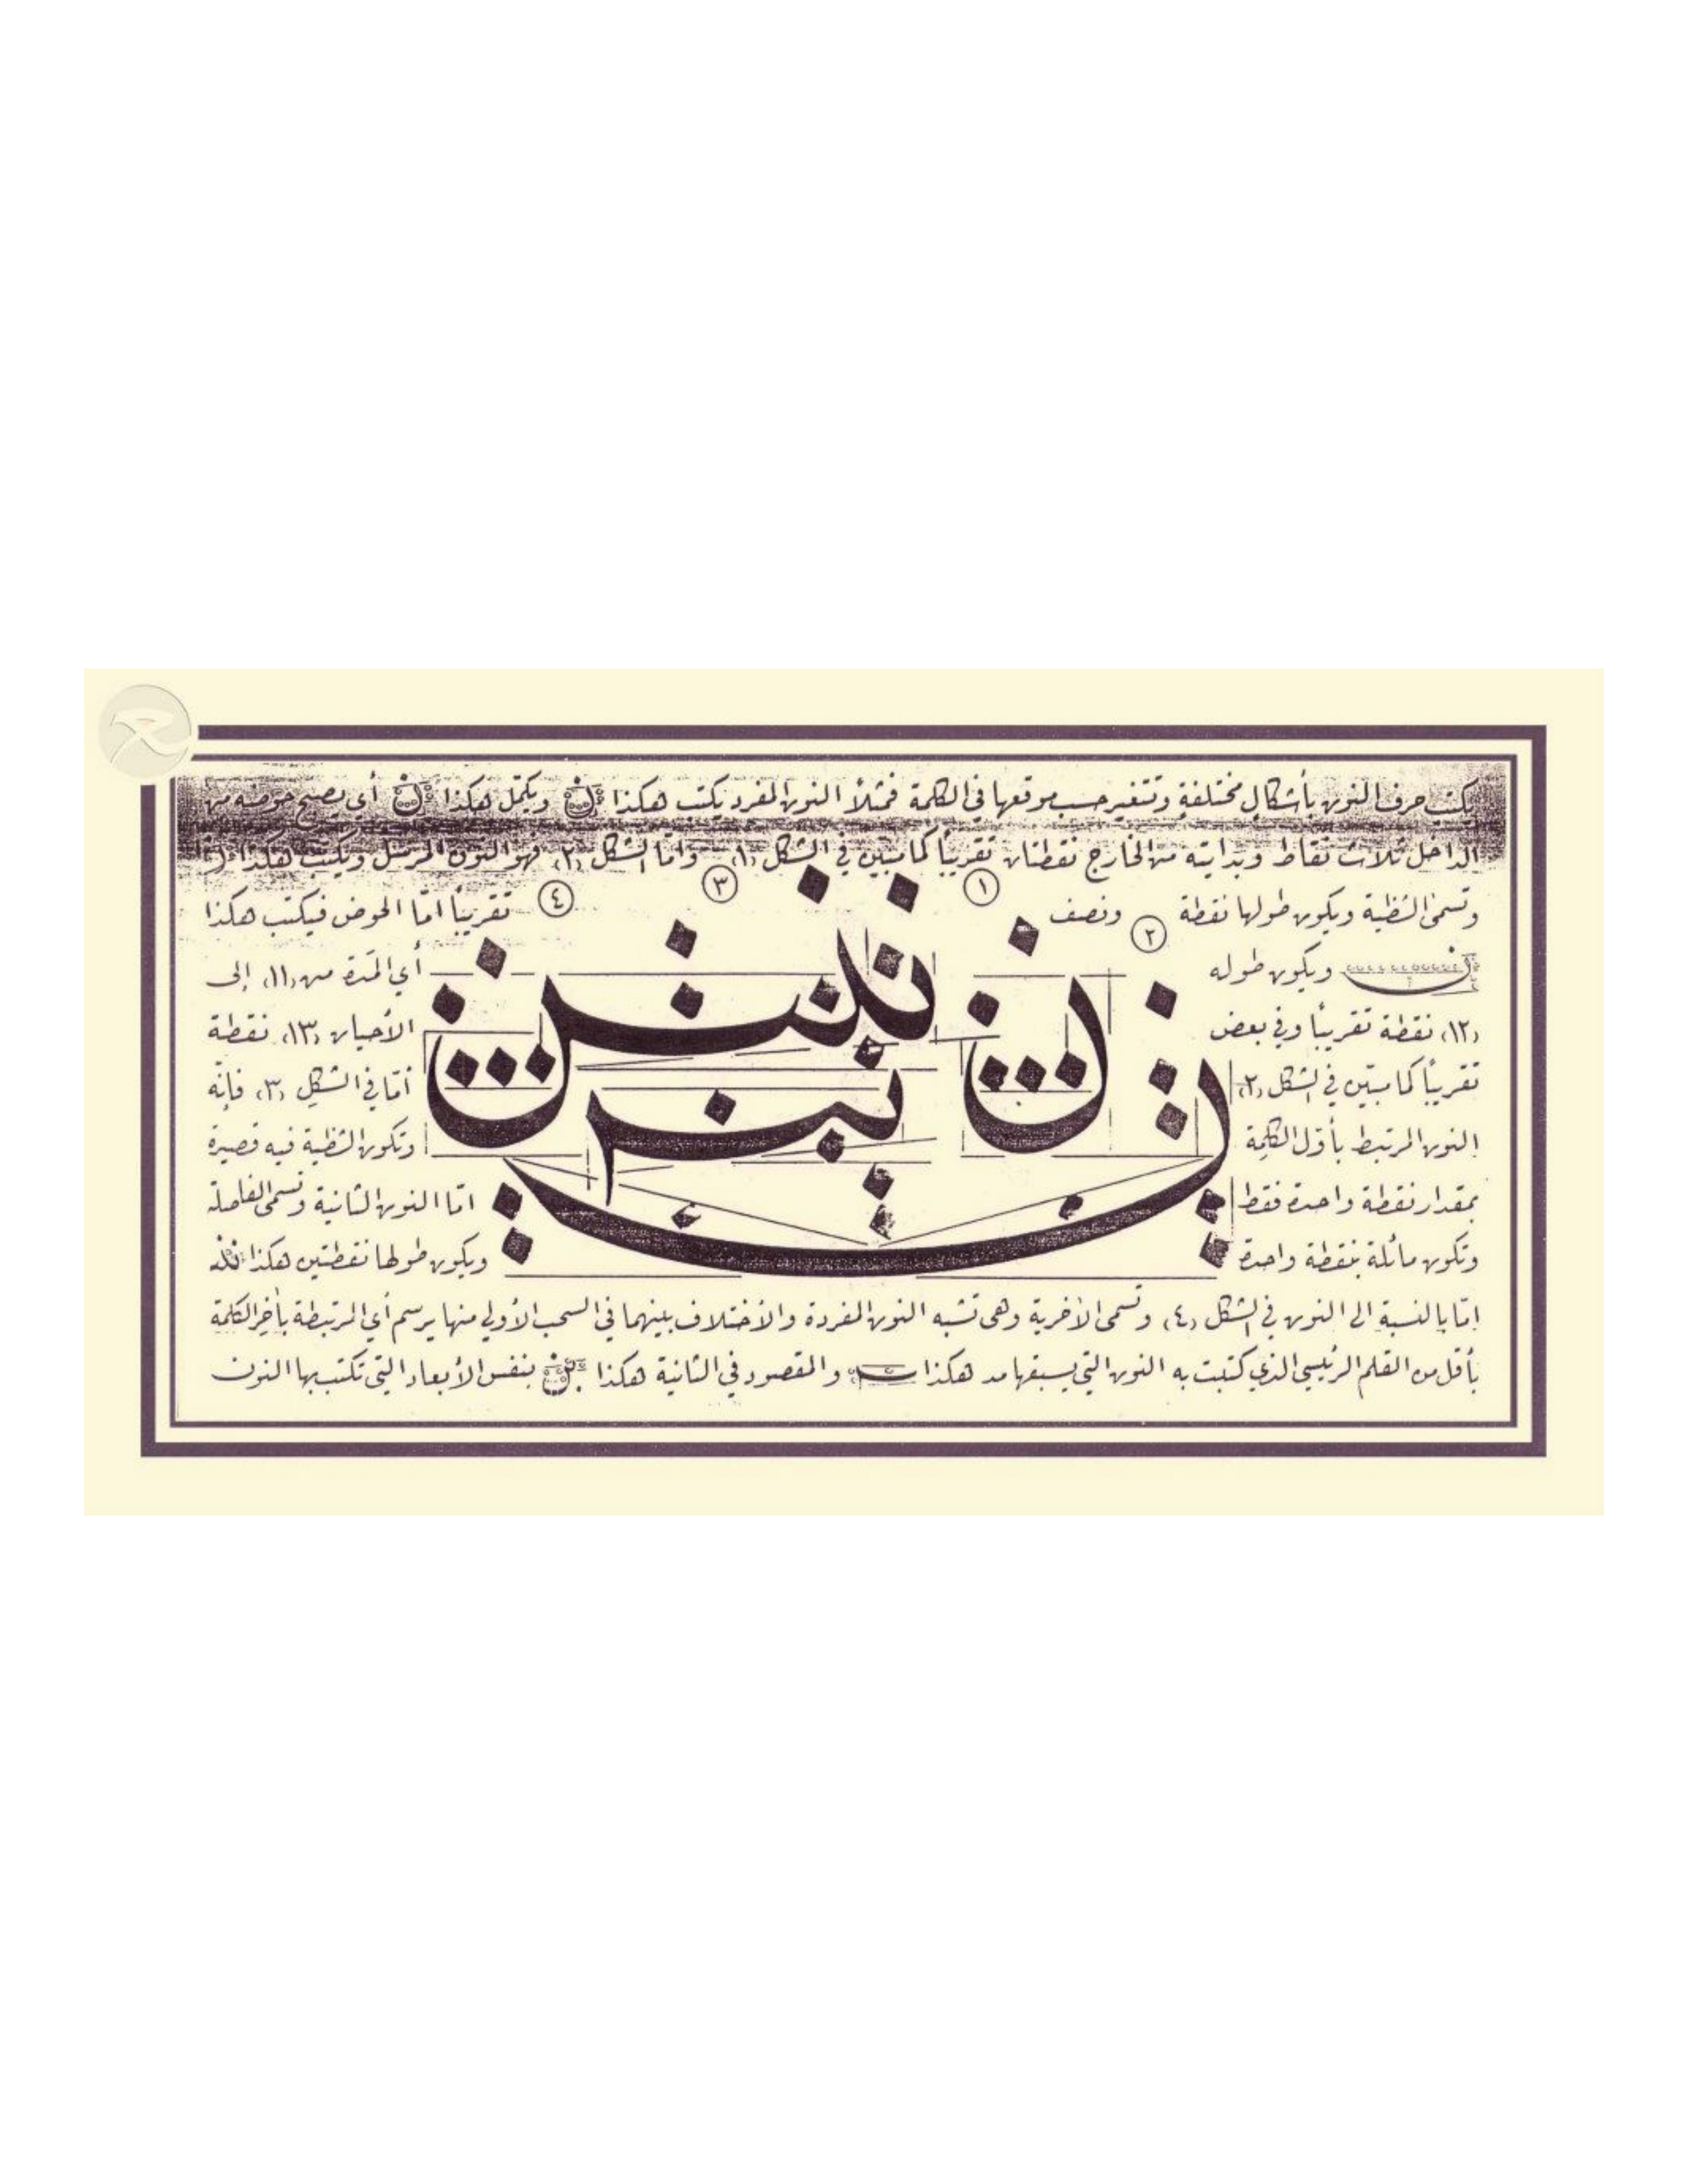 يكتب حرف النون بأشكال مختلفةٍ وتتغير حسب موقعها في الكلمة فمثلاً النون المفرد يكتب هكذا ن ويكمّل هكذا ن أي يصبح حوضه من
الداخل ثلاث نقاط وبدايته من الخارج نقطتان تقريباً كما مبيّن في الشكل (١) وأمّا الشكل (٢) فهو النون المرسل ويكتب هكذا
٣ ١
وتسمىٰ الشظية ويكون طولها نقطة ونصف تقريباً امّا الحوض فيكتب هكذا
٤ ٢
ن ويكون طوله أي المَدة من (١١) إلى
(١٢) نقطة تقريبًا وفي بعض الأحيان (١٣) نقطة
تقريباً كما مبيّن في الشكل (٢) أمّا في الشكلِ (٣) فإنّه
النون المرتبط بأوّل الكلِمة وتكون الشظية فيه قصيرة
بمقدار نقطة واحدة فقط امّا النون الثانية وتسمى الفاصلة
وتكون مائلة بنقطة واحدة ويكون طولها نقطتين هكذا
ن ننن
ن نن
امّا بالنسبةِ الى النون في الشكل (٤) وتسمى الأخرية وهى تشبه النون المفردة والأختلاف بينهما في السحب الأولي منها يرسم أي المرتبطة بآخِر الكلمة
بأقل من القلم الرئيسي الذي كتبت به النون التي يسبقها مد هكذا والمقصود في الثانية هكذا بنفس الأبعاد التي تكتب بها النون